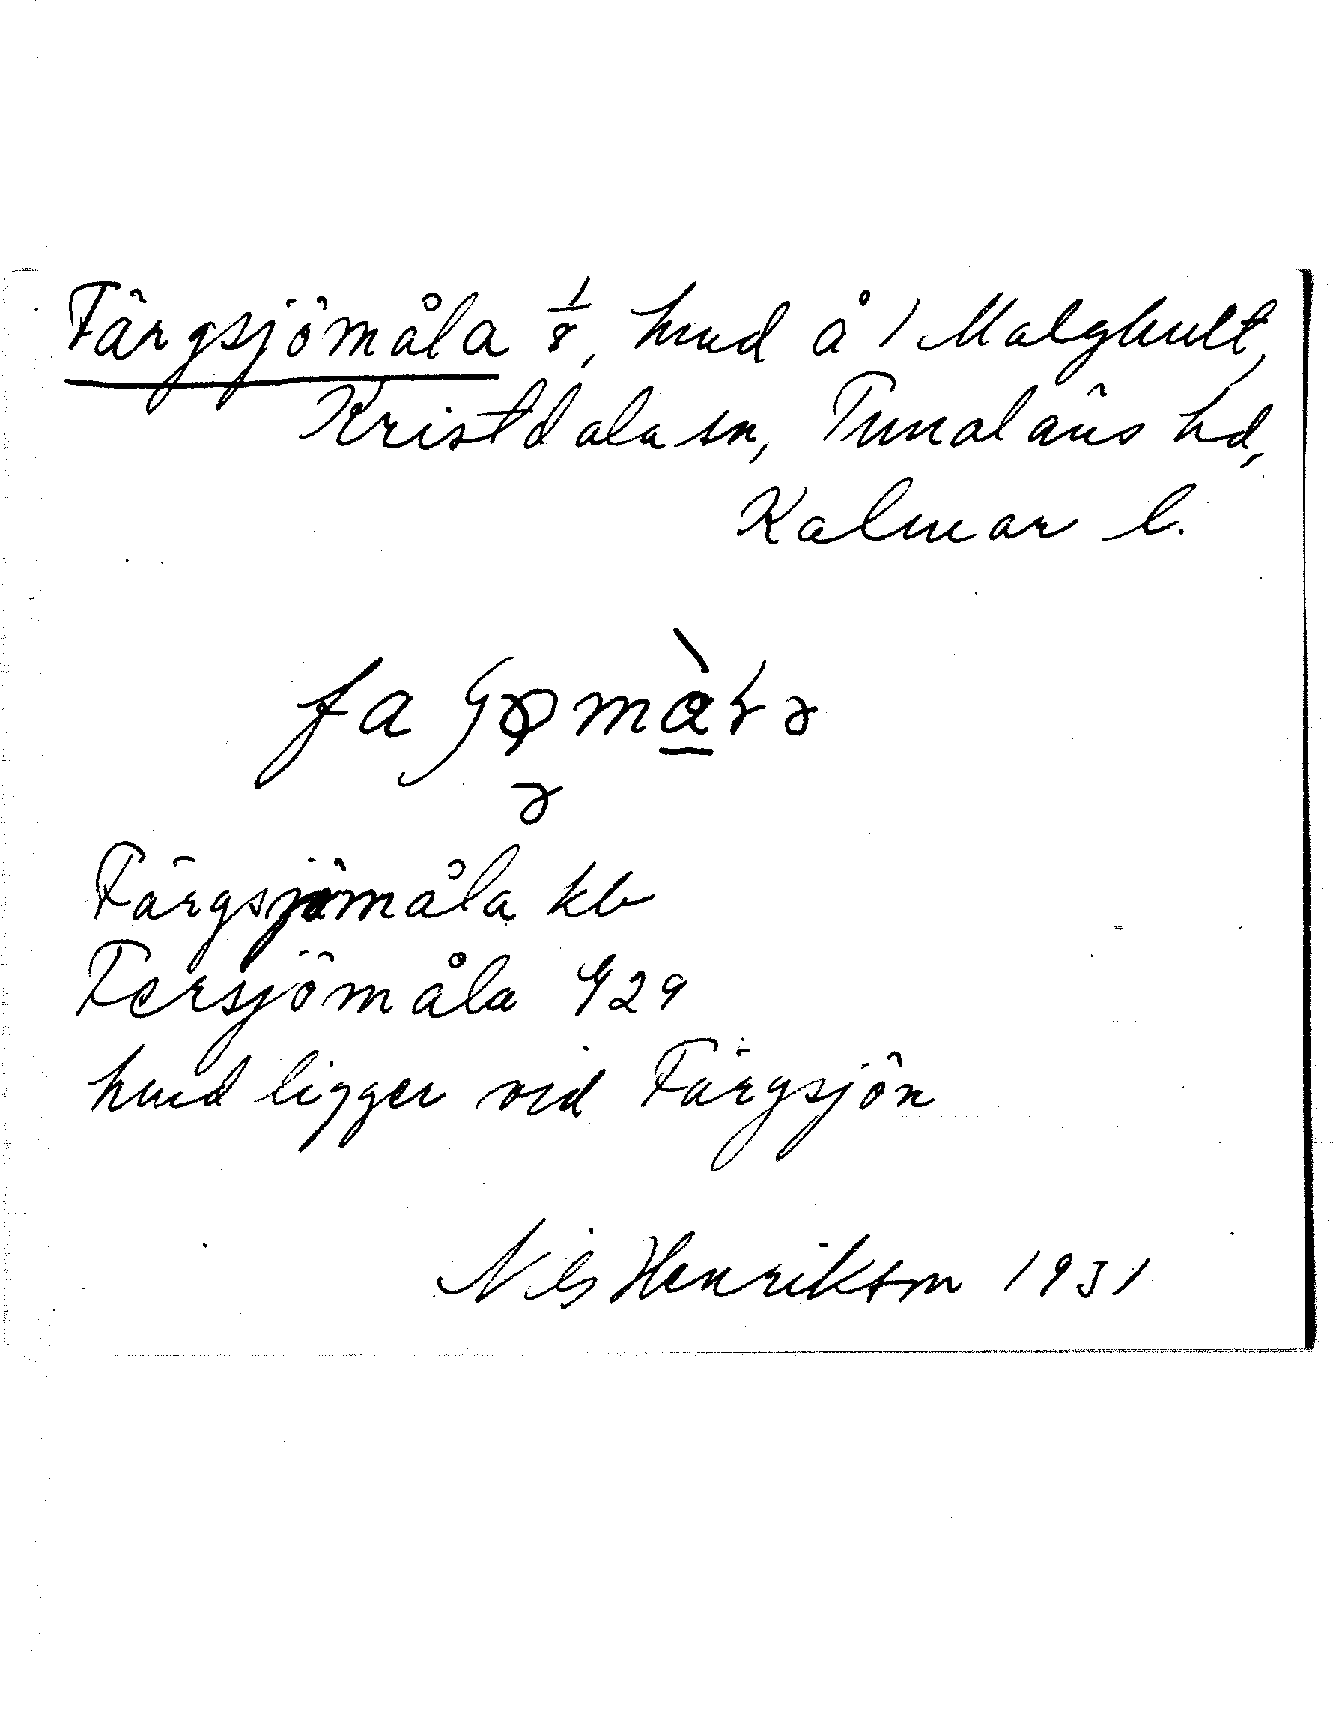 Färgsjömåla 1/8, hmd å 1 Malghult,
Kristdala sn, Tunaläns hd,
Kalmar l.
Färgsjömåla kb
Fersjömåla G29
hmd ligger vid Färgsjön
Nils Henrikson 1931